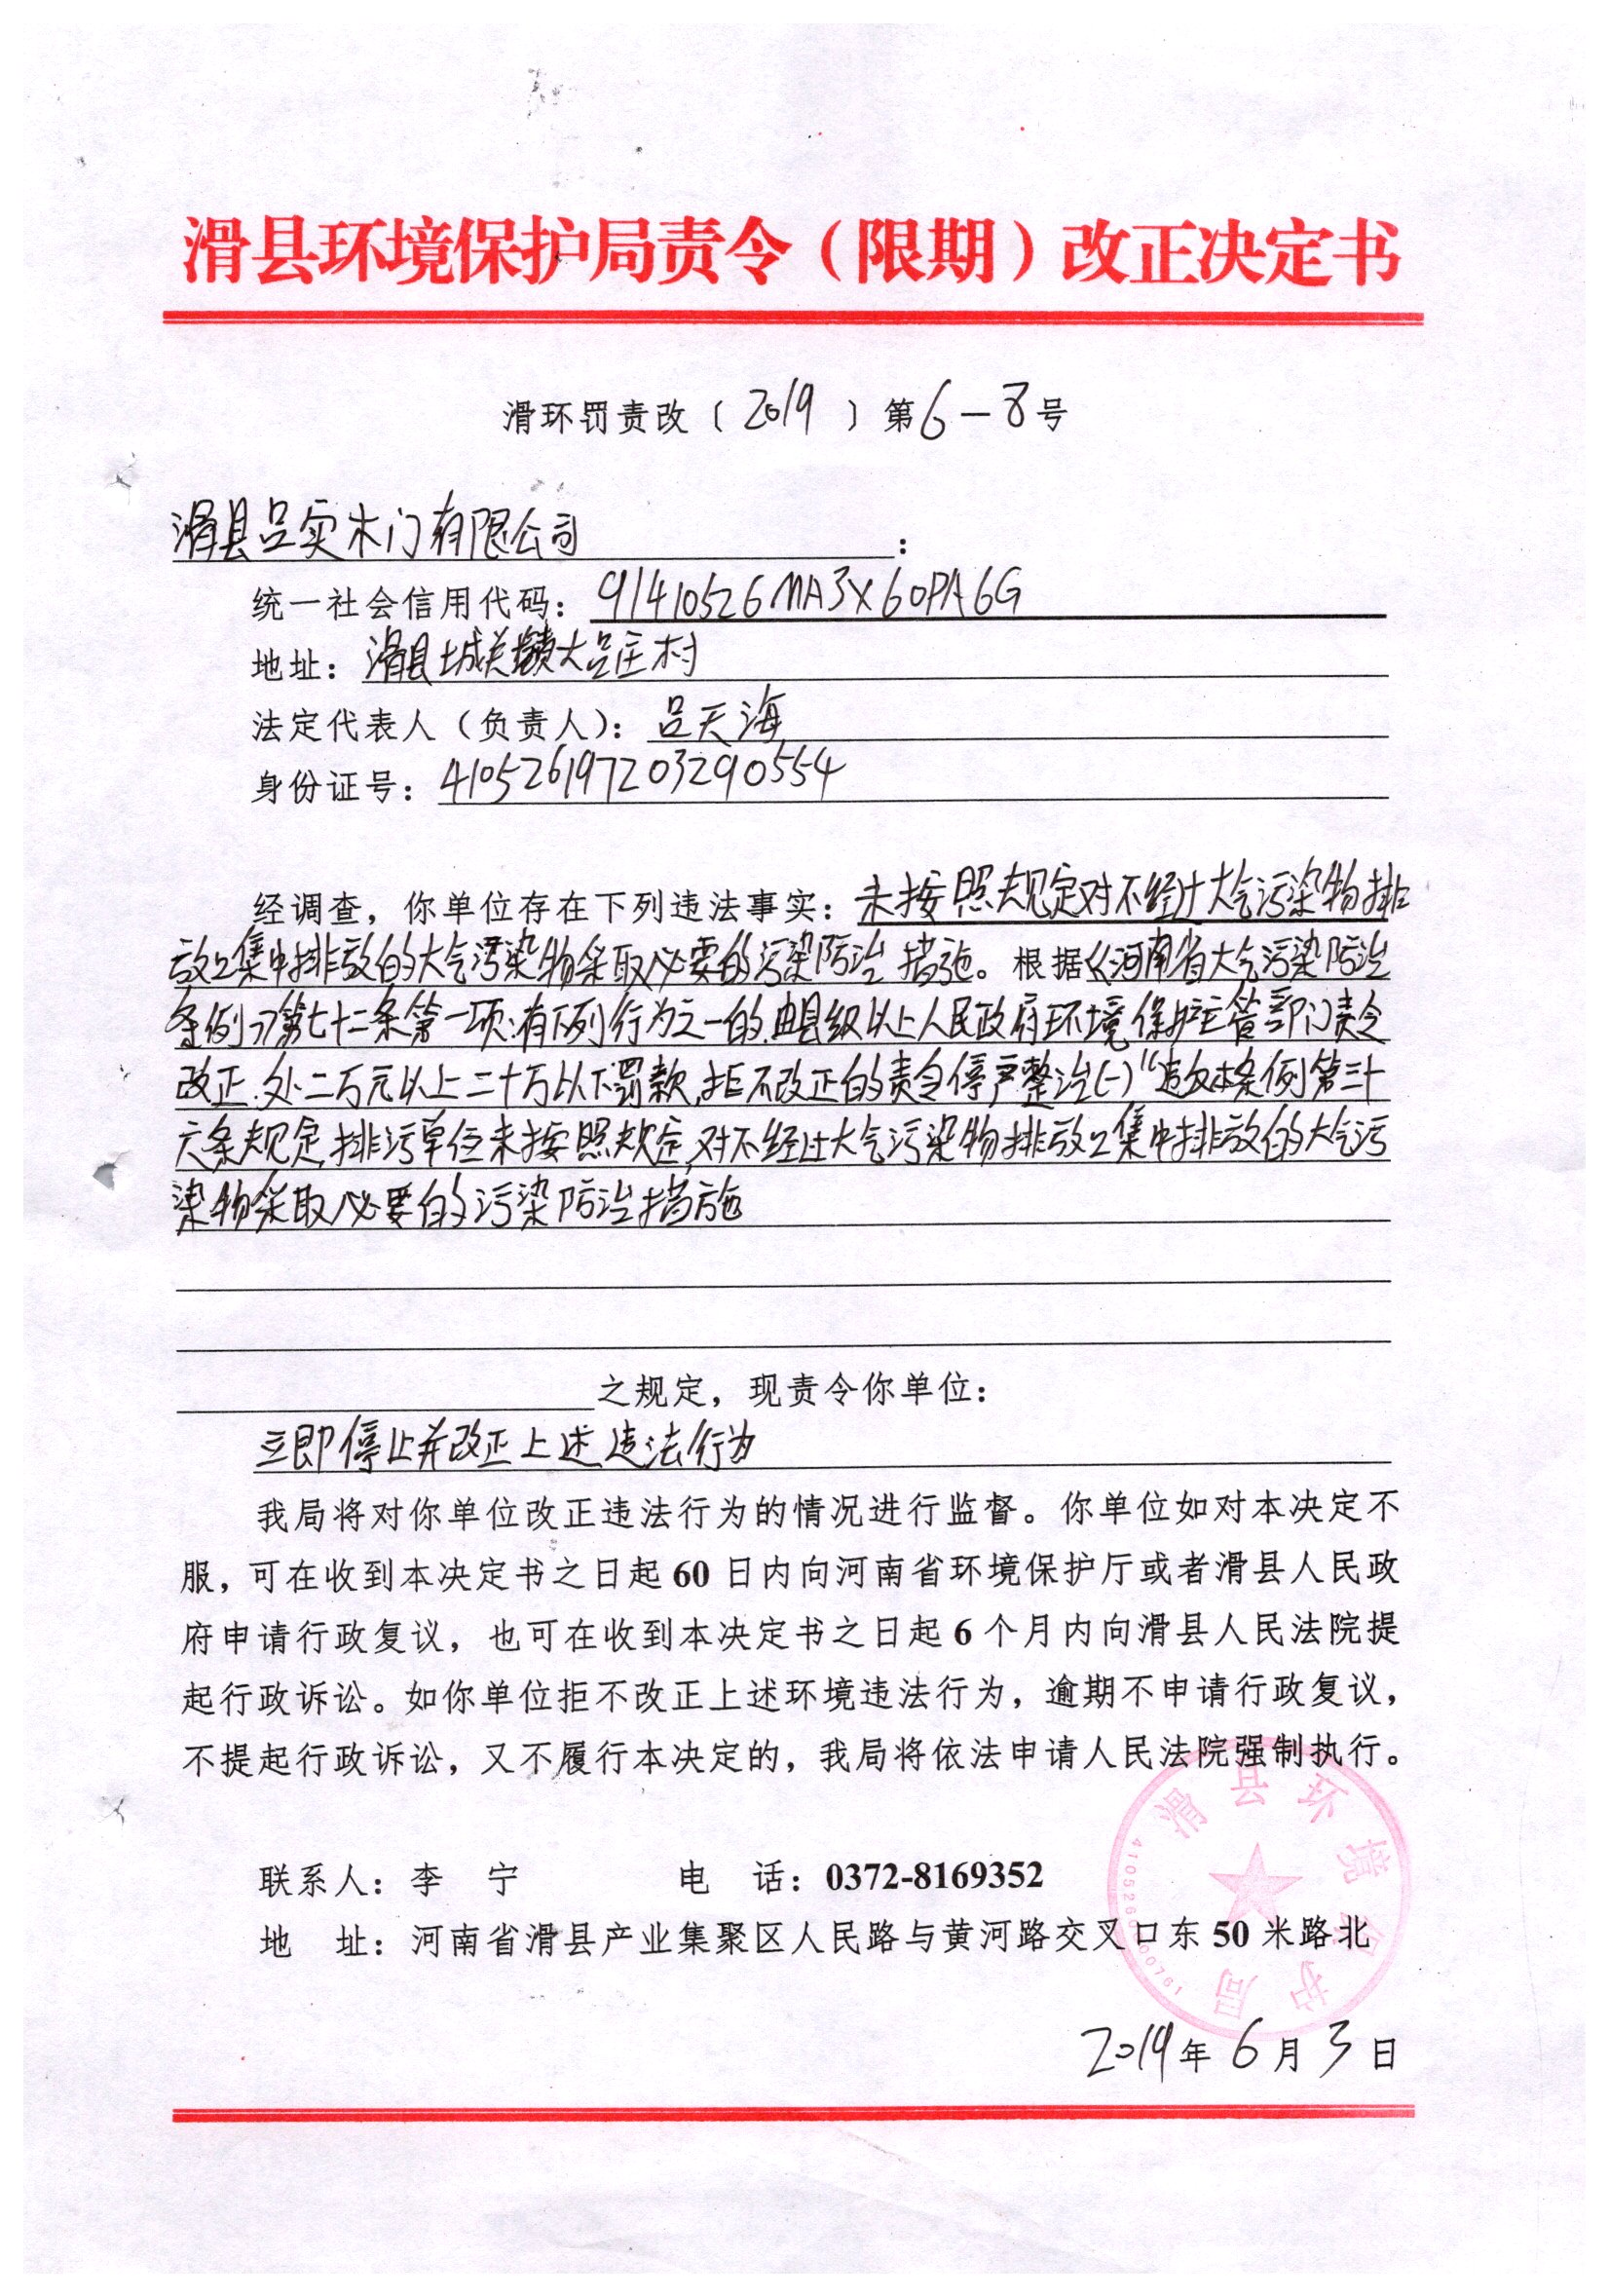 滑县环境保护局责令（限期）改正决定书
滑环罚责改〔2019〕第6-8号
滑县吕实木门有限公司：
统一社会信用代码：91410526MA3X60PA6G
地址：滑县城关镇大吕庄村
法定代表人（负责人）：吕天海
身份证号：410526197203290554
经调查，你单位存在下列违法事实：未按照规定对不经过大气污染物排
放口集中排放的大气污染物采取必要的污染防治措施。根据《河南省大气污染防治
条例》第七十二条第一项：有下列行为之一的，由县级以上人民政府环境保护主管部门责令
改正，处二万元以上二十万以下罚款，拒不改正的责令停产整治(一)“违反本条例第三十
六条规定，排污单位未按照规定，对不经过大气污染物排放口集中排放的大气污
染物采取必要的污染防治措施
之规定，现责令你单位：
立即停止并改正上述违法行为
我局将对你单位改正违法行为的情况进行监督。你单位如对本决定不
服，可在收到本决定书之日起60日内向河南省环境保护厅或者滑县人民政
府申请行政复议，也可在收到本决定书之日起6个月内向滑县人民法院提
起行政诉讼。如你单位拒不改正上述环境违法行为，逾期不申请行政复议，
不提起行政诉讼，又不履行本决定的，我局将依法申请人民法院强制执行。
滑县环境保护局
联系人：李 宁 电 话：0372-8169352
地 址：河南省滑县产业集聚区人民路与黄河路交叉口东50米路北
2019年6月3日